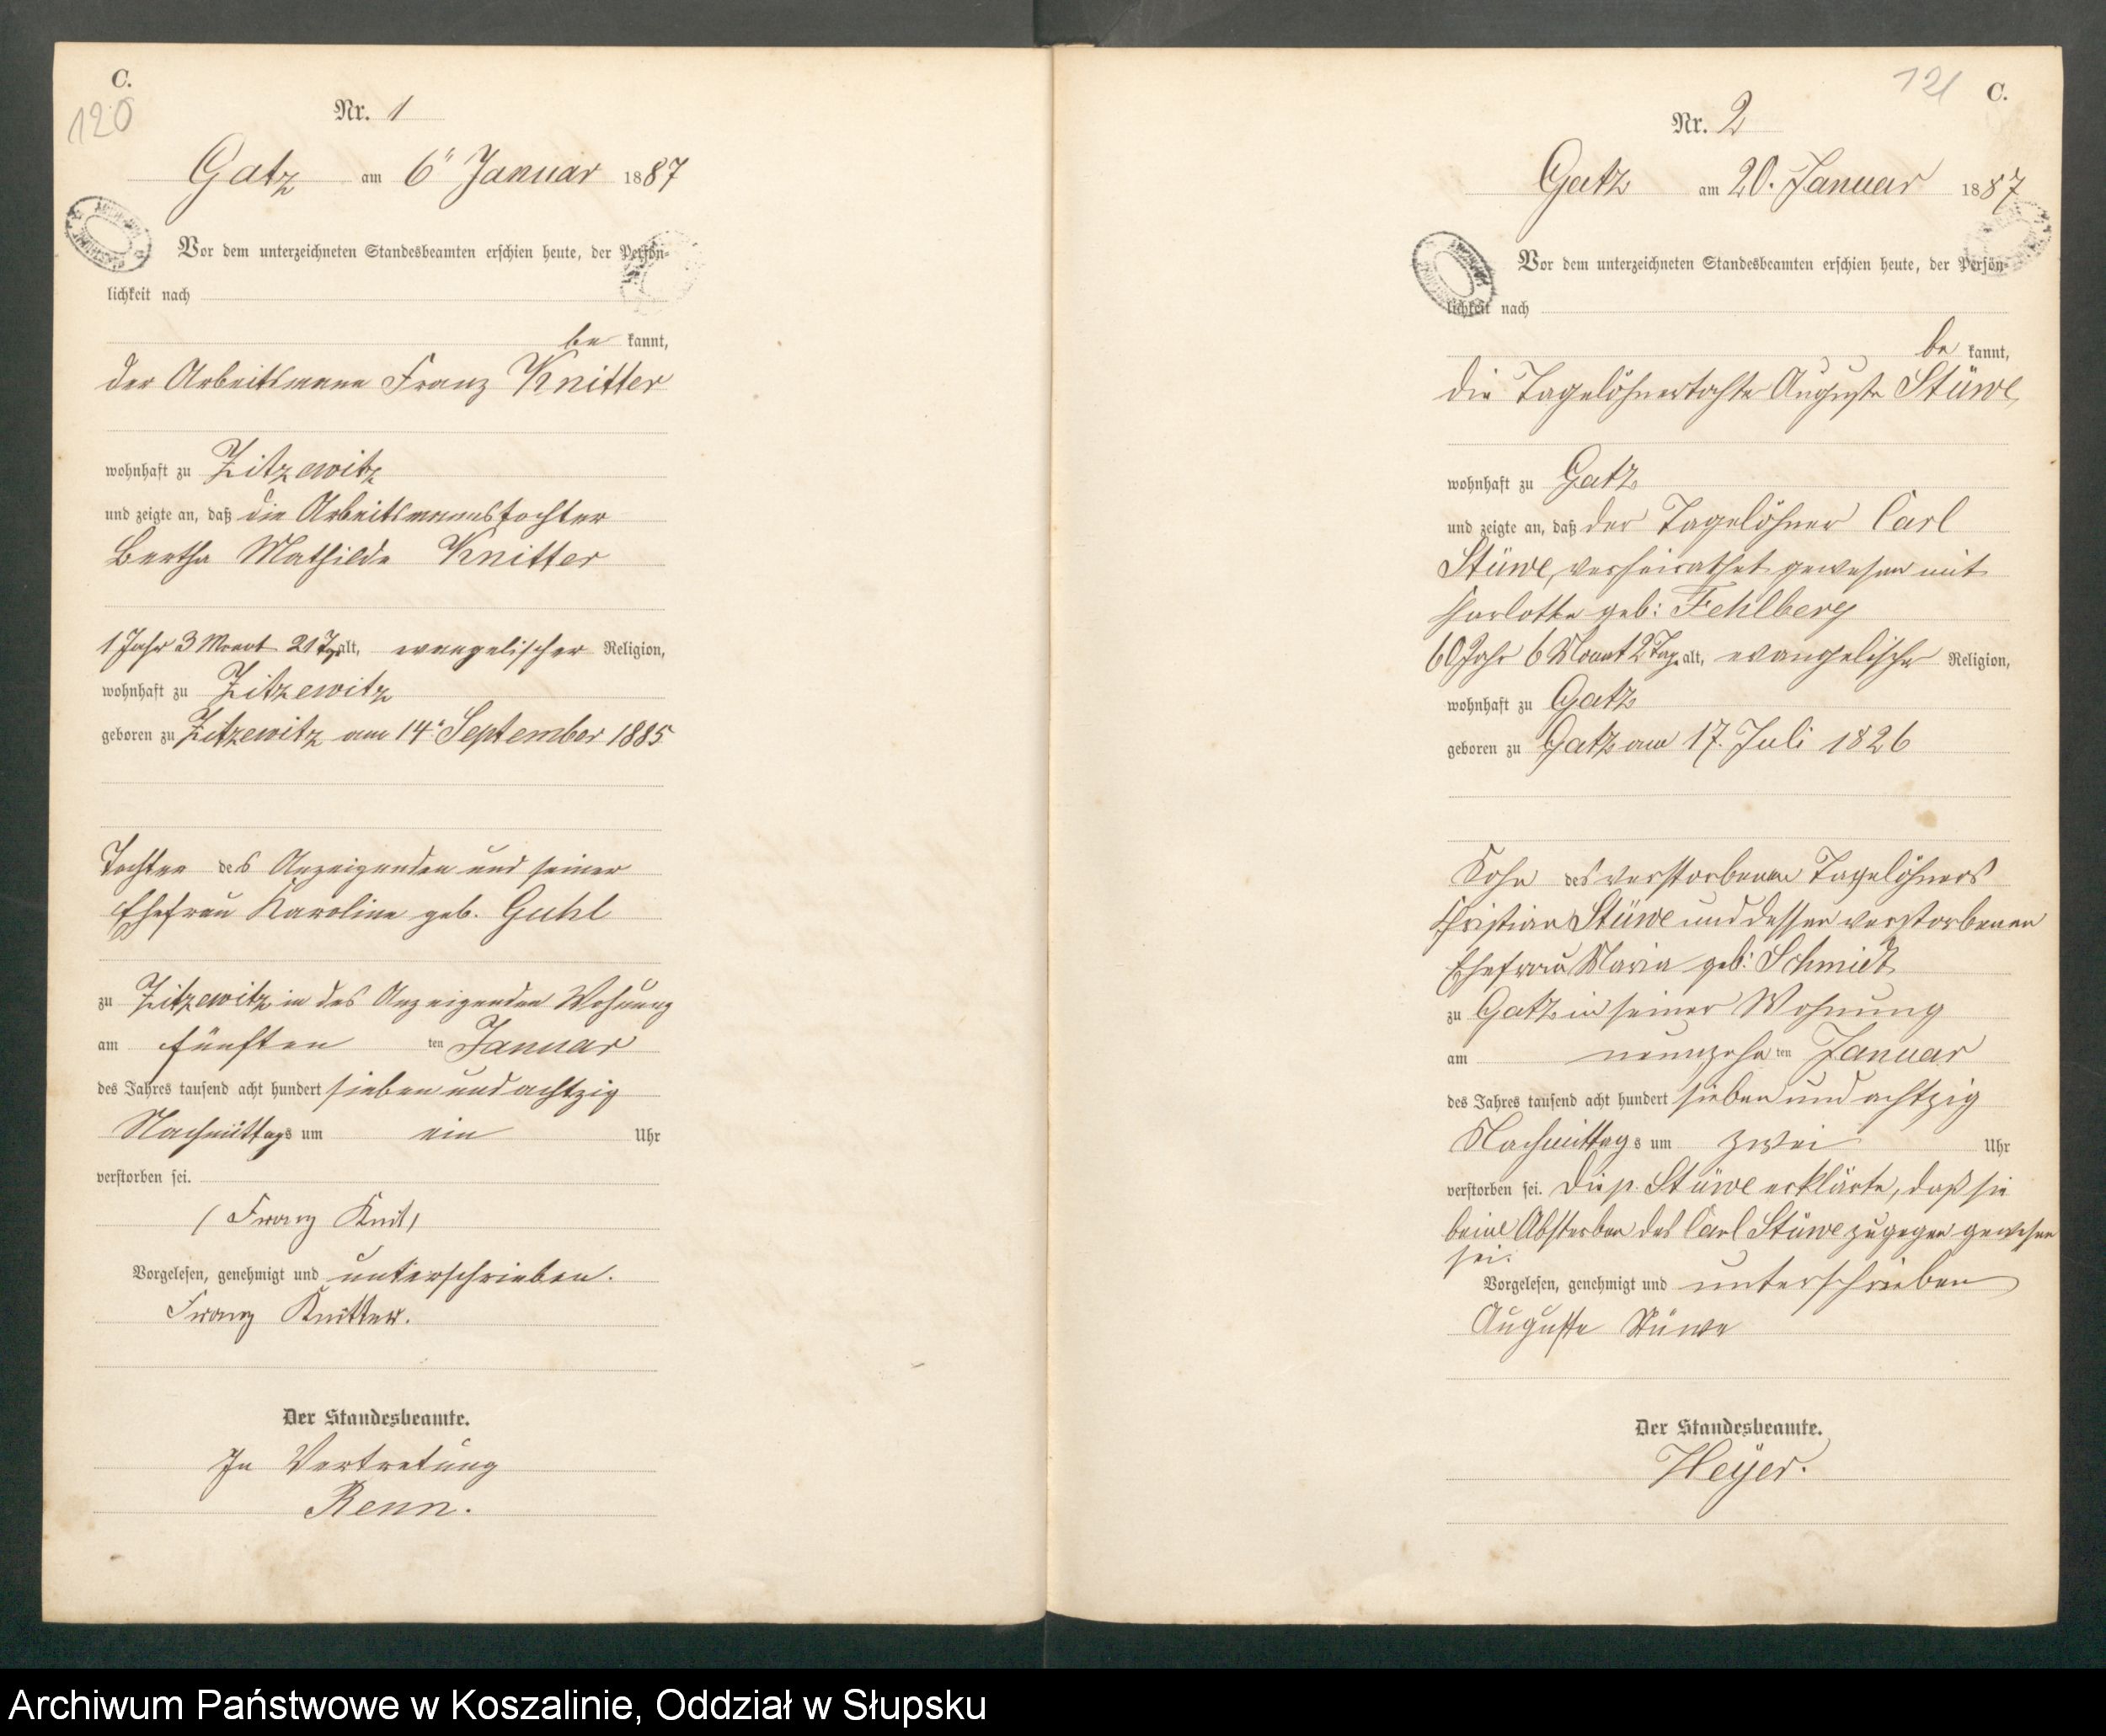 C.
120
Nr. 1
Gatz am 6ten Januar 1887
Vor dem unterzeichneten Standesbeamten erschien heute, der Persön-
lichkeit nach
be kannt,
der Arbeitsmann Franz Knitter
wohnhaft zu Zitzewitz
und zeigte an, daß die Arbeitsmannstochter
Bertha Mathilde Knitter
1 Jahr 3 Monat 21 Tg alt, evangelischer Religion,
wohnhaft zu Zitzewitz
geboren zu Zitzewitz am 14. September 1885
Tochter des Anzeigenden und seiner
Ehefrau Karoline geb. Guhl
zu Zitzewitz in des Anzeigenden Wohnung
am fünften ten Januar
des Jahres tausend acht hundert sieben und achtzig
Nachmittags um ein Uhr
verstorben sei.
/ Franz Knit /
Vorgelesen, genehmigt und unterschrieben.
Franz Knitter.
Der Standesbeamte.
In Vertretung
Renn.
121 C.
Nr. 2
Gatz am 20. Januar 1887
Vor dem unterzeichneten Standesbeamten erschien heute, der Persön-
lichkeit nach
be kannt,
die Tagelöhnertochter Auguste Stüwe,
wohnhaft zu Gatz
und zeigte an, daß der Tagelöhner Carl
Stüwe, verheirathet gewesen mit
Charlotte geb: Fehlberg
60 Jahr 6 Monat 2 Tag alt, evangelischer Religion,
wohnhaft zu Gatz
geboren zu Gatz am 17. Juli 1826
Sohn des verstorbenen Tagelöhners
Christian Stüwe und dessen verstorbenen
Ehefrau Maria geb: Schmidt
zu Gatz in seiner Wohnung
am neunzehn ten Januar
des Jahres tausend acht hundert sieben und achtzig
Nachmittags um zwei Uhr
verstorben sei. Die p. Stüwe erklärte, daß sie
beim Absterben des Carl Stüwe zugegen gewesen
sei.
Vorgelesen, genehmigt und unterschrieben
Auguste Stüwe
Der Standesbeamte.
Heyer.
Archiwum Państwowe w Koszalinie, Oddział w Słupsku